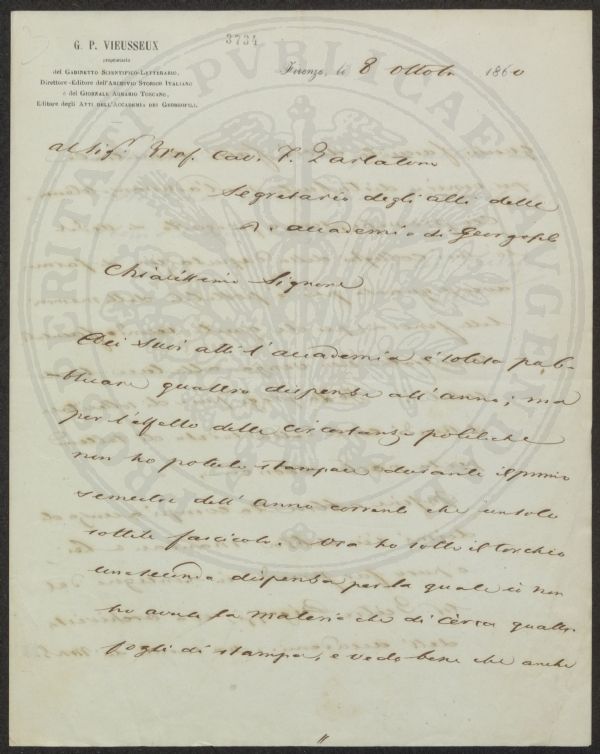 3734
G. P. VIEUSSEUX
proprietario
del GABINETTO SCIENTIFICO-LETTERARIO,
Direttore-Editore dell'ARCHIVIO STORICO ITALIANO
e del GIORNALE AGRARIO TOSCANO,
Editore degli ATTI DELL'ACCADEMIA DEI GEORGOFILI.
Firenze, li 8 Ottobr 1860
al Sigr. Prof. Cav. F.
Segretario degli atti della
R. accademia di Georgofili
Chiarissimo Signore
Dei suoi atti l'accademia è solita pub-
blicare quattro dispense all'anno; ma
per l'effetto delle circostanze politiche
non ho potuto stampare durante il primo
semestre dell'anno corrente che un solo
sottile fascicolo. Ora ho sotto il torchio
una seconda dispensa per la quale io non
ho avuto la materia che di circa quattro
fogli di stampa, e vedo bene che anche
PROSPERITATI PUBLICAE AUGENDAE